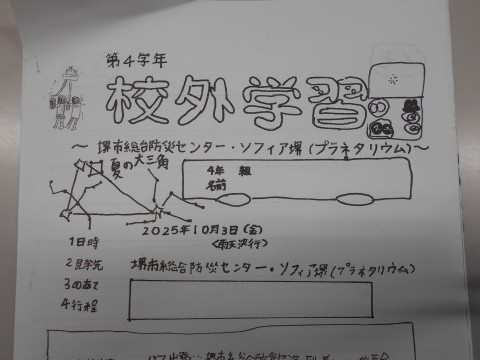 第4学年
校外学習
～堺市総合防災センター・ソフィア堺(プラネタリウム)～
夏の大三角
4年 組
名前
2025年10月3日(金)
<雨天決行>
1日時
2見学先 堺市総合防災センター・ソフィア堺(プラネタリウム)
3めあて
4行程